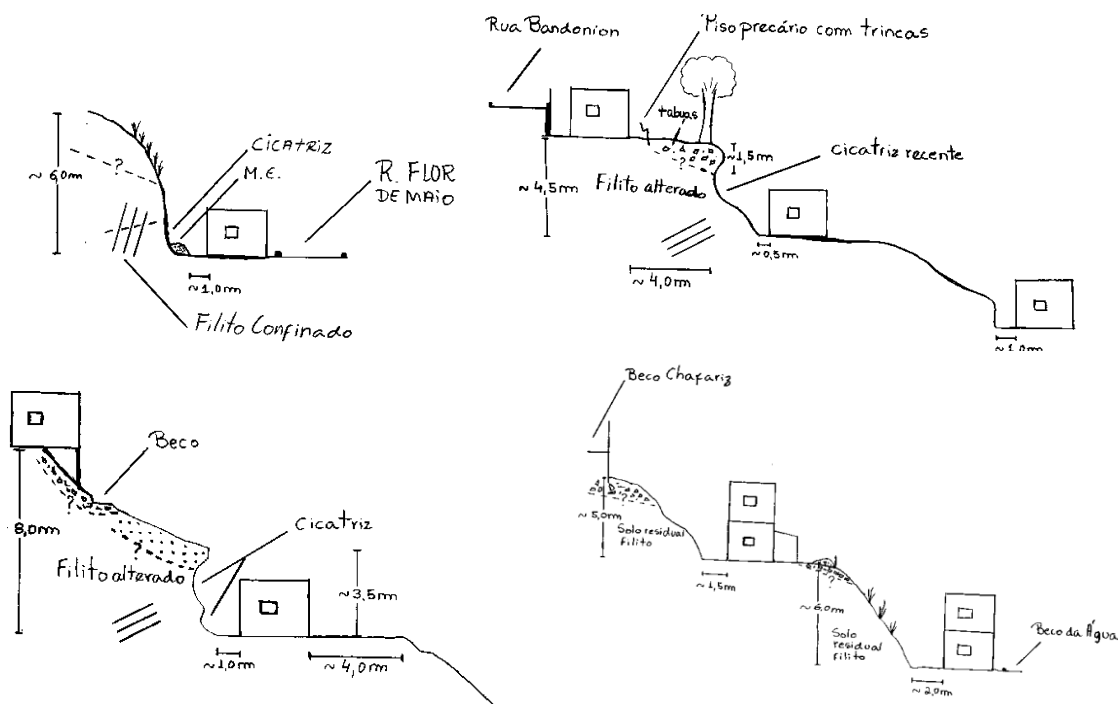 ~ 6,0m
?
CICATRIZ
M.E.
R. FLOR
DE MAIO
~1,0m
Filito Confinado
Rua Bandonion
Piso precário com trincas
tábuas
?
~1,5m
cicatriz recente
~ 4,5m
Filito alterado
~0,5m
~ 4,0m
~1,0m
Beco
?
8,0m
Cicatriz
?
Filito alterado
~3,5m
~1,0m
~ 4,0m
Beco Chafariz
?
~ 5,0m
Solo residual
filito
~ 1,5m
?
~ 6,0m
Solo
residual
filito
Beco da Água
~ 2,0m